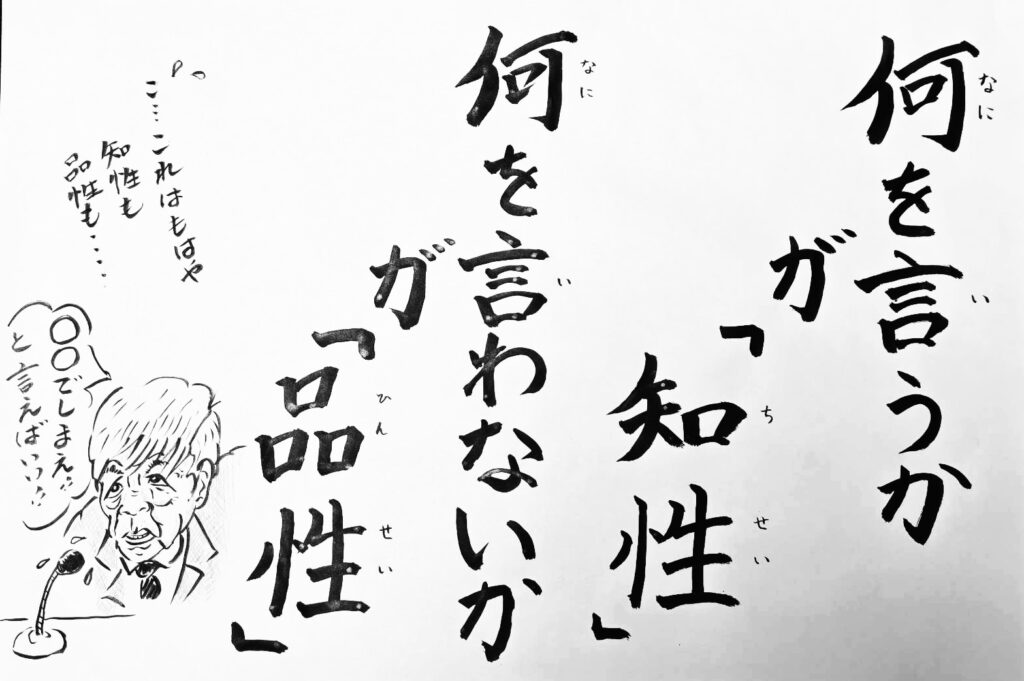 何を言うか
が
「知性」
何を言わないか
が
「品性」
なに
い
ち
せい
なに
い
ひん
せい
こ…これはもはや
知性も
品性も・・・・
○○でしまえ!!
と言えばいい!!